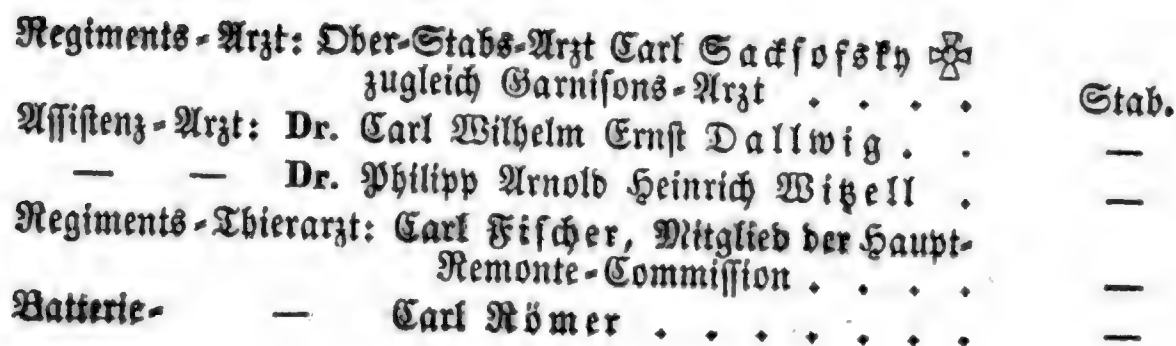 Regiments-Arzt: Ober-Stabs-Arzt Carl Sackfofsky ✠
zugleich Garnisons-Arzt . . . . Stab.
Assistenz-Arzt: Dr. Carl Wilhelm Ernst Dallwig . . —
— — Dr. Philipp Arnold Heinrich Witzell . —
Regiments-Thierarzt: Carl Fischer, Mitglied der Haupt-
Remonte-Commission . . . . —
Batterie- — Carl Römer . . . . . . . —